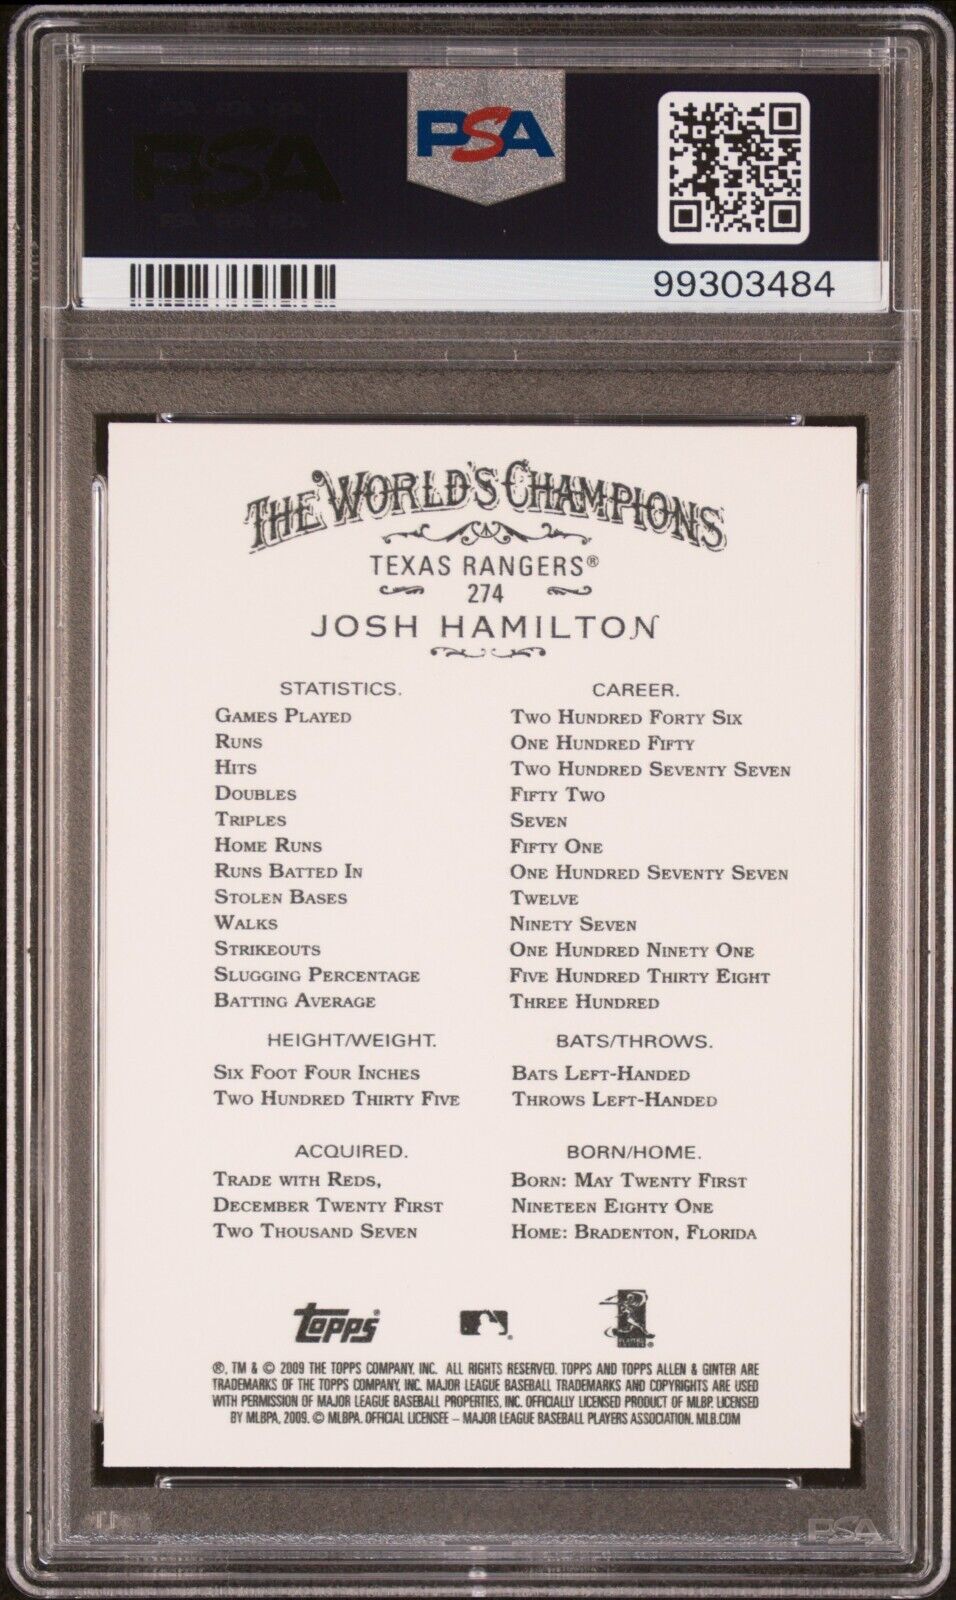 PSA
99303484
THE WORLD'S CHAMPIONS
TEXAS RANGERS®
274
JOSH HAMILTON
STATISTICS. CAREER.
GAMES PLAYED TWO HUNDRED FORTY SIX
RUNS ONE HUNDRED FIFTY
HITS TWO HUNDRED SEVENTY SEVEN
DOUBLES FIFTY TWO
TRIPLES SEVEN
HOME RUNS FIFTY ONE
RUNS BATTED IN ONE HUNDRED SEVENTY SEVEN
STOLEN BASES TWELVE
WALKS NINETY SEVEN
STRIKEOUTS ONE HUNDRED NINETY ONE
SLUGGING PERCENTAGE FIVE HUNDRED THIRTY EIGHT
BATTING AVERAGE THREE HUNDRED
HEIGHT/WEIGHT. BATS/THROWS.
SIX FOOT FOUR INCHES BATS LEFT-HANDED
TWO HUNDRED THIRTY FIVE THROWS LEFT-HANDED
ACQUIRED. BORN/HOME.
TRADE WITH REDS, BORN: MAY TWENTY FIRST
DECEMBER TWENTY FIRST NINETEEN EIGHTY ONE
TWO THOUSAND SEVEN HOME: BRADENTON, FLORIDA
Topps®
®, TM & © 2009 THE TOPPS COMPANY, INC. ALL RIGHTS RESERVED. TOPPS AND TOPPS ALLEN & GINTER ARE
TRADEMARKS OF THE TOPPS COMPANY, INC. MAJOR LEAGUE BASEBALL TRADEMARKS AND COPYRIGHTS ARE USED
WITH PERMISSION OF MAJOR LEAGUE BASEBALL PROPERTIES, INC. OFFICIALLY LICENSED PRODUCT OF MLBP. LICENSED
BY MLBPA, 2009. © MLBPA. OFFICIAL LICENSEE – MAJOR LEAGUE BASEBALL PLAYERS ASSOCIATION. MLB.COM
PSA